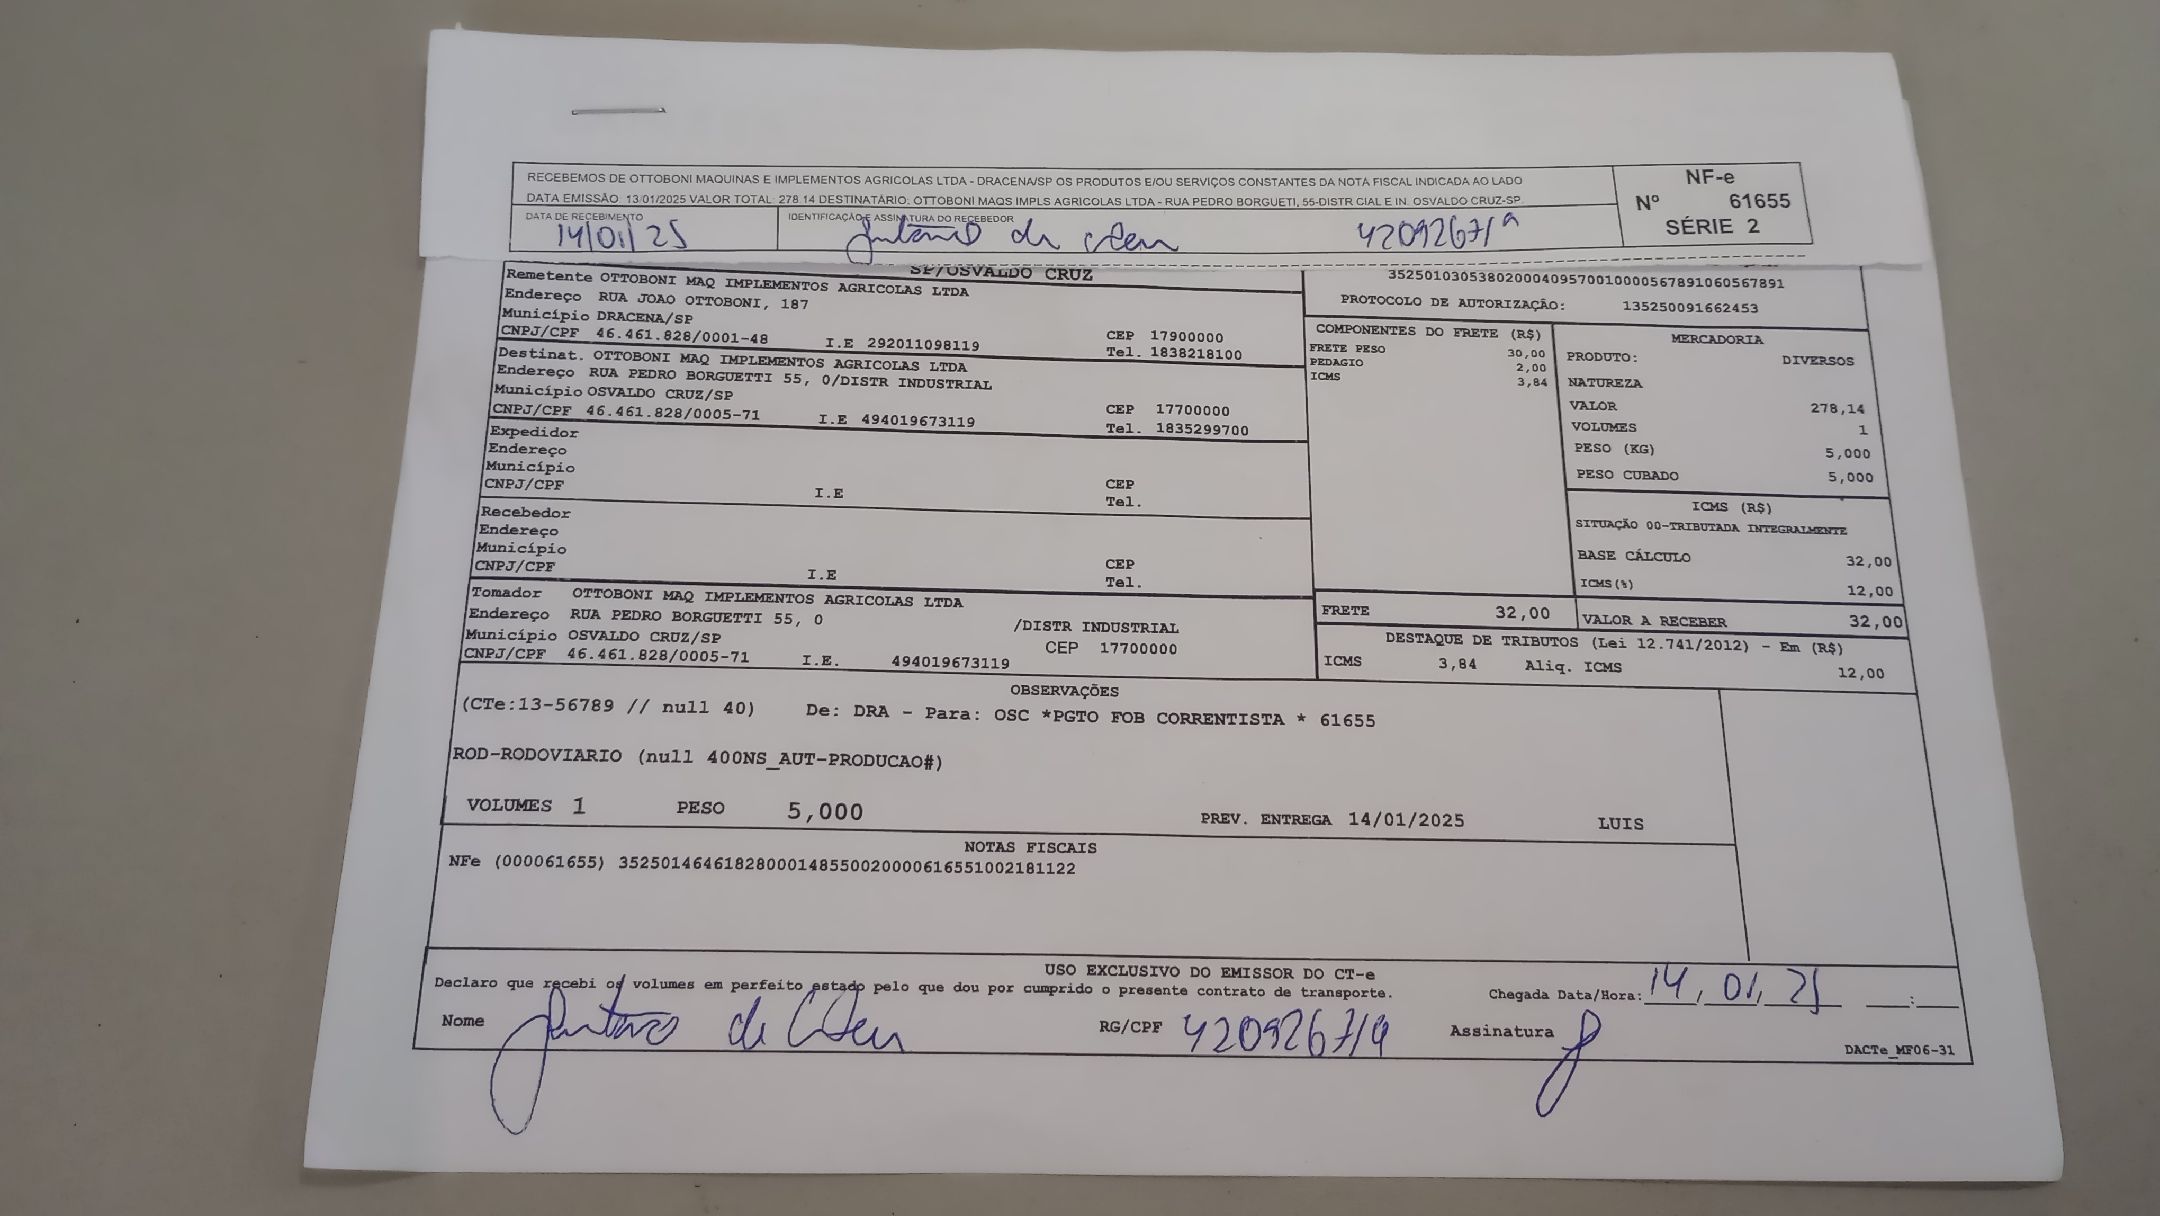 RECEBEMOS DE OTTOBONI MAQUINAS E IMPLEMENTOS AGRICOLAS LTDA - DRACENA/SP OS PRODUTOS E/OU SERVIÇOS CONSTANTES DA NOTA FISCAL INDICADA AO LADO
DATA EMISSÃO: 13/01/2025 VALOR TOTAL: 278.14 DESTINATÁRIO: OTTOBONI MAQS IMPLS AGRICOLAS LTDA - RUA PEDRO BORGUETI, 55-DISTR CIAL E IN. OSVALDO CRUZ-SP.
NF-e
Nº 61655
SÉRIE 2
DATA DE RECEBIMENTO
14/01/25
IDENTIFICAÇÃO E ASSINATURA DO RECEBEDOR
SP/OSVALDO CRUZ
Remetente OTTOBONI MAQ IMPLEMENTOS AGRICOLAS LTDA
Endereço RUA JOAO OTTOBONI, 187
Município DRACENA/SP
CNPJ/CPF 46.461.828/0001-48 I.E 292011098119 CEP 17900000
Tel. 1838218100
Destinat. OTTOBONI MAQ IMPLEMENTOS AGRICOLAS LTDA
Endereço RUA PEDRO BORGUETTI 55, 0/DISTR INDUSTRIAL
Município OSVALDO CRUZ/SP
CNPJ/CPF 46.461.828/0005-71 I.E 494019673119 CEP 17700000
Tel. 1835299700
Expedidor
Endereço
Município
CNPJ/CPF I.E CEP
Tel.
Recebedor
Endereço
Município
CNPJ/CPF I.E CEP
Tel.
Tomador OTTOBONI MAQ IMPLEMENTOS AGRICOLAS LTDA
Endereço RUA PEDRO BORGUETTI 55, 0 /DISTR INDUSTRIAL
Município OSVALDO CRUZ/SP CEP 17700000
CNPJ/CPF 46.461.828/0005-71 I.E. 494019673119
35250103053802000409570010000567891060567891
PROTOCOLO DE AUTORIZAÇÃO: 135250091662453
COMPONENTES DO FRETE (R$)
FRETE PESO 30,00
PEDAGIO 2,00
ICMS 3,84
MERCADORIA
PRODUTO: DIVERSOS
NATUREZA
VALOR 278,14
VOLUMES 1
PESO (KG) 5,000
PESO CUBADO 5,000
ICMS (R$)
SITUAÇÃO 00-TRIBUTADA INTEGRALMENTE
BASE CÁLCULO 32,00
ICMS(%) 12,00
FRETE 32,00 VALOR A RECEBER 32,00
DESTAQUE DE TRIBUTOS (Lei 12.741/2012) - Em (R$)
ICMS 3,84 Aliq. ICMS 12,00
OBSERVAÇÕES
(CTe:13-56789 // null 40) De: DRA - Para: OSC *PGTO FOB CORRENTISTA * 61655
ROD-RODOVIARIO (null 400NS_AUT-PRODUCAO#)
VOLUMES 1 PESO 5,000 PREV. ENTREGA 14/01/2025 LUIS
NOTAS FISCAIS
NFe (000061655) 35250146461828000148550020000616551002181122
USO EXCLUSIVO DO EMISSOR DO CT-e
Declaro que recebi os volumes em perfeito estado pelo que dou por cumprido o presente contrato de transporte. Chegada Data/Hora: 14, 01, 25 :
Nome RG/CPF Assinatura
DACTe_MF06-31